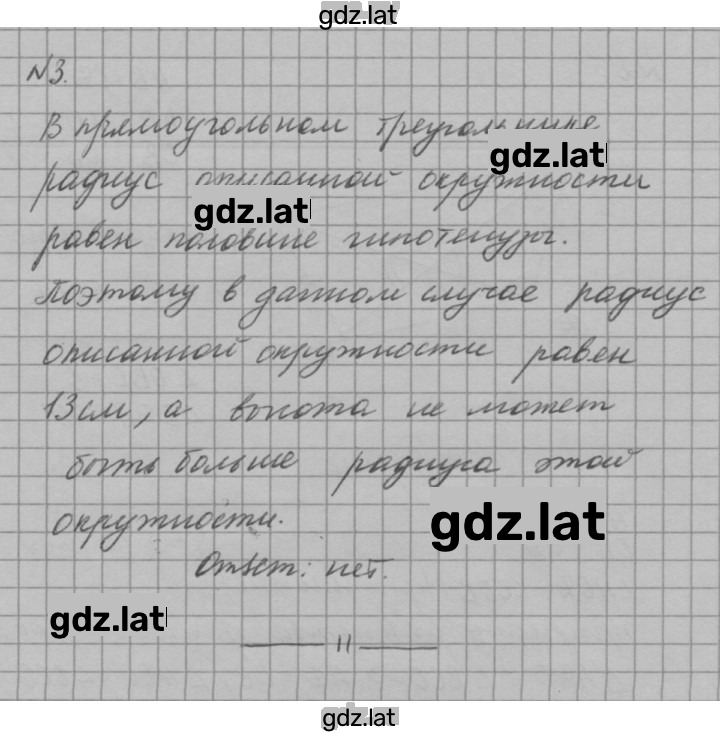 gdz.lat
№3.
В прямоугольном треугольнике
gdz.lat
радиус описанной окружности
gdz.lat
равен половине гипотенузы.
Поэтому в данном случае радиус
описанной окружности равен
13 см, а высота не может
быть больше радиуса этой
gdz.lat
окружности.
Ответ: нет.
gdz.lat
11
gdz.lat